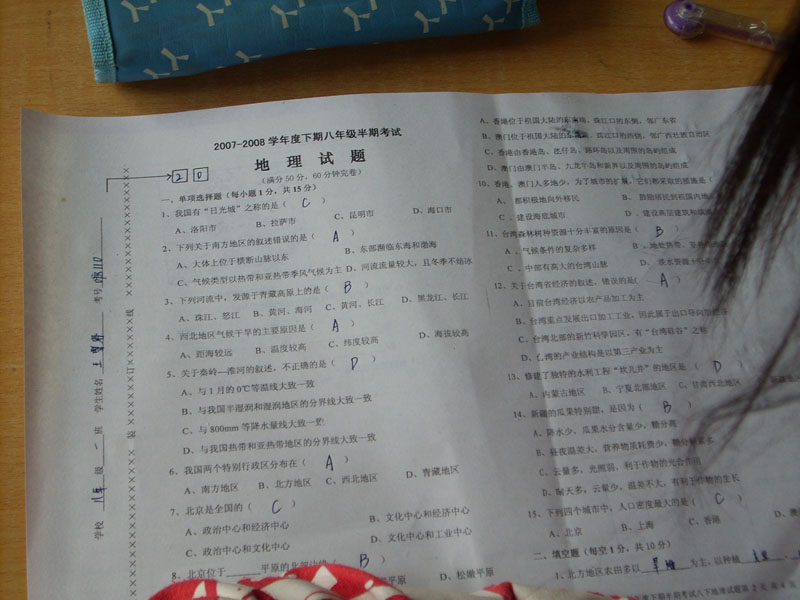 2007-2008 学年度下期八年级半期考试
地 理 试 题
(满分50分，60分钟完卷)
2 0
一、单项选择题（每小题1分，共15分）
1、我国有“日光城”之称的是（ C ）
A、洛阳市 B、拉萨市 C、昆明市 D、海口市
2、下列关于南方地区的叙述错误的是（ A ）
A、大体上位于横断山脉以东 B、东部濒临东海和渤海
C、气候类型以热带和亚热带季风气候为主 D、河流流量较大，且冬季不结冰
3、下列河流中，发源于青藏高原上的是（ B ）
A、珠江、怒江 B、黄河、海河 C、黄河、长江 D、黑龙江、长江
4、西北地区气候干旱的主要原因是（ A ）
A、距海较远 B、温度较高 C、纬度较高 D、海拔较高
5、关于秦岭—淮河的叙述，不正确的是（ D ）
A、与1月的0℃等温线大致一致
B、与我国半湿润和湿润地区的分界线大致一致
C、与800mm等降水量线大致一致
D、与我国热带和亚热带地区的分界线大致一致
6、我国两个特别行政区分布在（ A ）
A、南方地区 B、北方地区 C、西北地区 D、青藏地区
7、北京是全国的（ C ）
A、政治中心和经济中心 B、文化中心和经济中心
C、政治中心和文化中心 D、文化中心和工业中心
8、北京位于______平原的北部 B ）
D、松嫩平原
学校 八年 级 一 班 学生姓名 考号
装 订 线
A、香港位于祖国大陆的东南端，珠江口的东侧，邻广东省
B、澳门位于祖国大陆的东南端，珠江口的西侧，邻广西壮族自治区
C、香港由香港岛、氹仔岛、路环岛以及周围的岛屿组成
D、澳门由澳门半岛、九龙半岛和新界以及周围的岛屿组成
10、香港、澳门人多地少，为了城市的扩展，它们都采取的措施是（
A、都积极地向外移民 B、鼓励居民到祖国内地
C、建设海底城市 D、建设高层建筑和
11、台湾森林树种资源十分丰富的原因是（ B ）
A、气候条件的复杂多样 B、地处热带、
C、中部有高大的台湾山脉 D、
12、关于台湾省经济的叙述，错误的是( A ）
A、目前台湾经济以农产品加工为主
B、台湾重点发展出口加工工业，因此属于出口导向
C、台湾北部的新竹科学园区，有“台湾硅谷”之称
D、台湾的产业结构是以第三产业为主
13、修建了独特的水利工程“坎儿井”的地区是（ D ）
A、内蒙古地区 B、宁夏北部地区 C、甘肃西北地区
14、新疆的瓜果特别甜，是因为（ B ）
A、降水少，瓜果水分含量少，糖分高
B、昼夜温差大，营养物质耗费少，糖分积累多
C、云量多，光照弱，利于作物的光合作用
D、晴天多，云量少，温差不大，有利于作物的生长
15、下列四个城市中，人口密度最大的是（ C ）
A、北京 B、上海 C、香港 D、澳
二、填空题（每空1分，共10分）
1、北方地区农田多以 旱地 为主，以种植
年度下期半期考试八下地理试题第2页 共4页